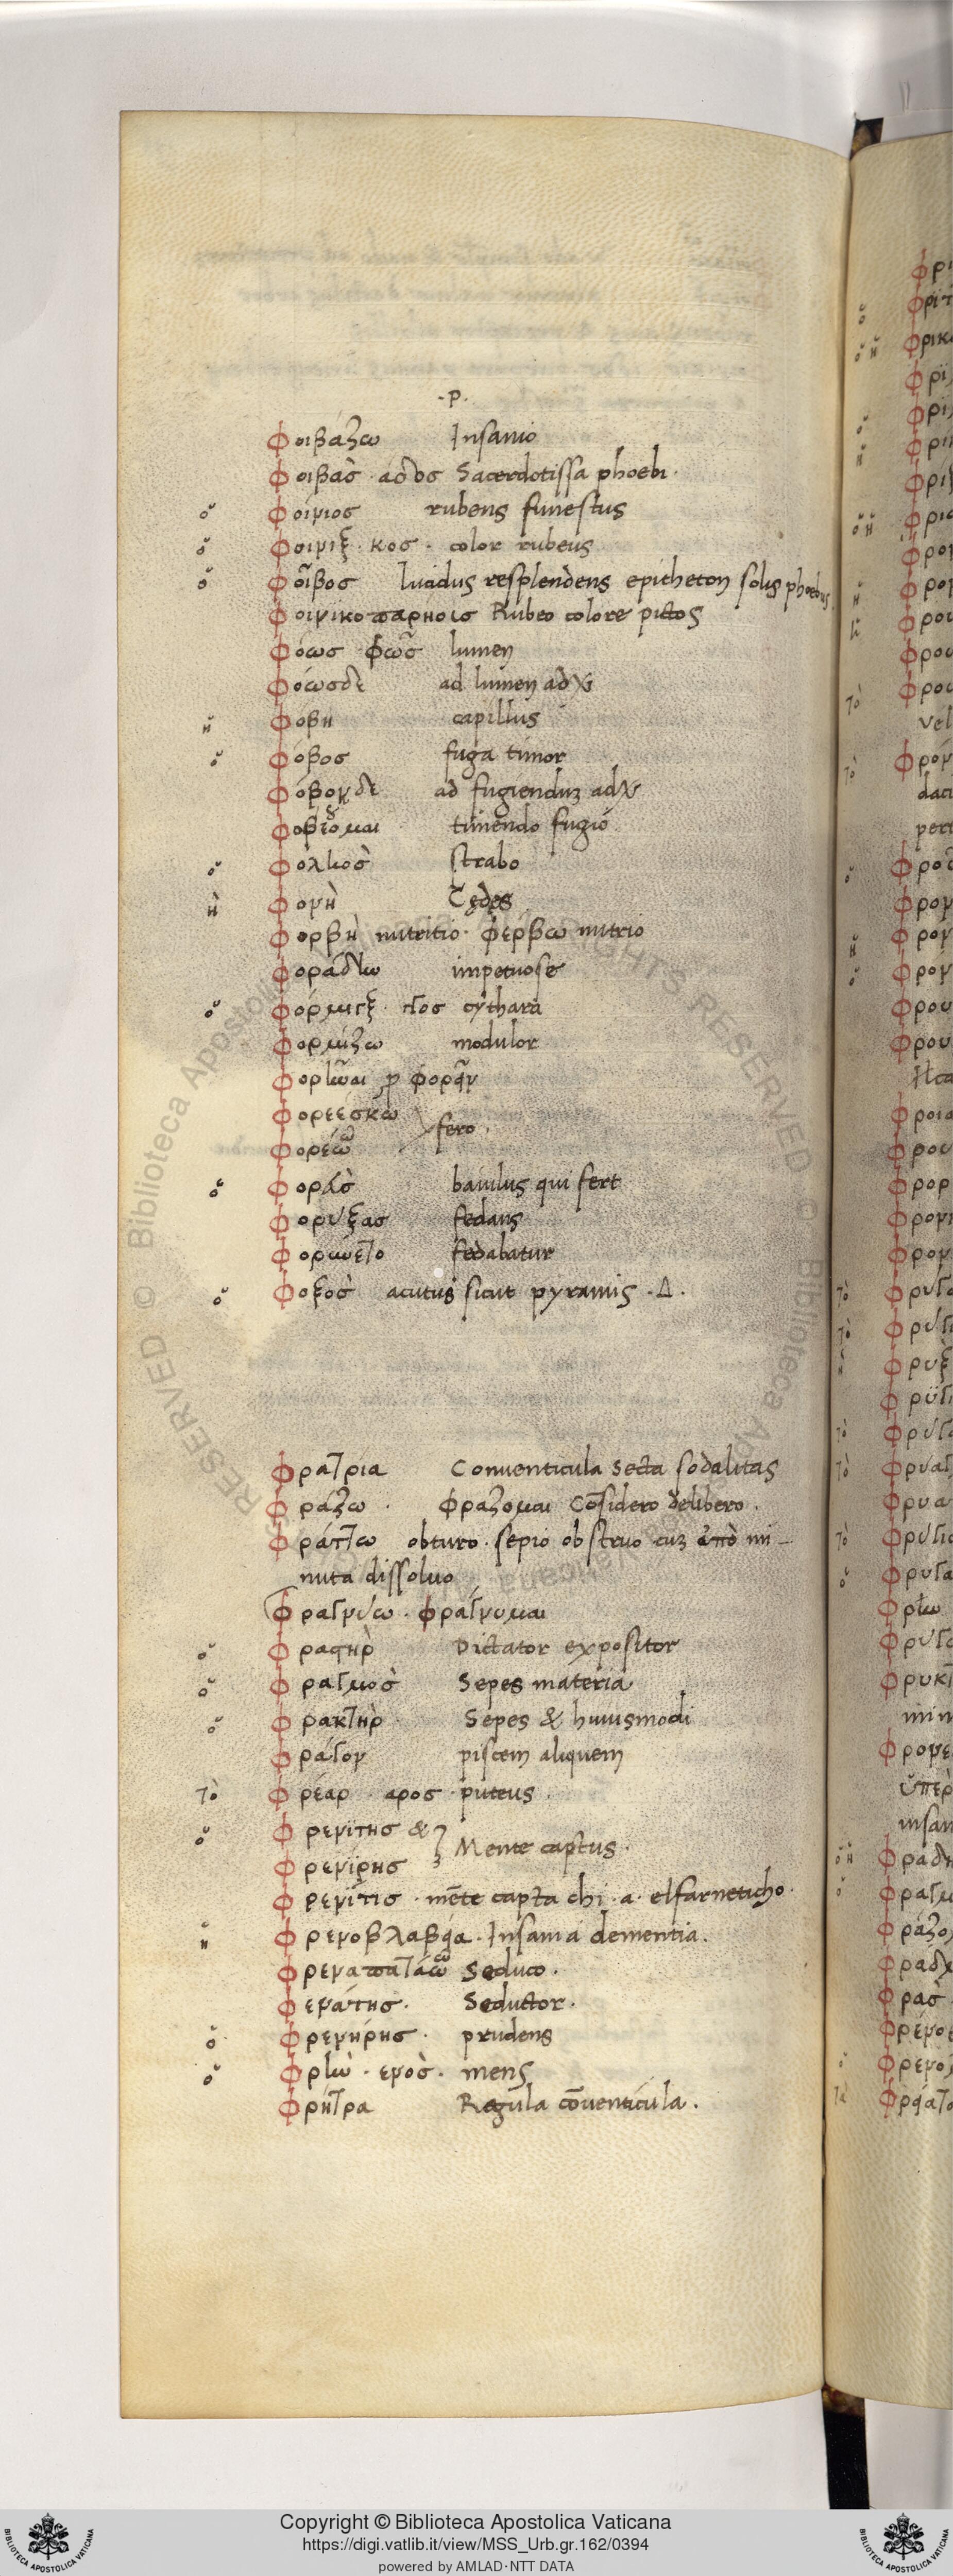 ·ρ·
Φοιβάζω Insanio
Φοιβὰσ · άδοσ Sacerdotissa phoebi ·
ὁ Φοίνιοσ rubens funestus
ὁ Φοινιξ · κοσ · color rubeus
ὁ Φοῖβοσ lucidus resplendens epitheton solis phoebus
Φοινικοπαρηοισ Rubeo colore pictos
Φόωσ φῶσ lumen
Φόωσδε ad lumen
ἡ Φοβη capillus
ὁ Φόβοσ fuga timor
Φόβονδε ad fugienduz
Φοβέομαι timendo fugio
ὁ Φολκοσ̀ strabo
ἡ Φονὴ
Φορβὴ nutritio · φέρβω nutrio
Φοράδην impetuose
ὁ Φόρμιγξ · γοσ cythara
Φορμίζω modulor
Φορῆναι φορεῖν
Φορεέσκω
Φορέω fero ·
ὁ Φορὸσ baiulus qui fert
Φορύξασ fedans
Φορύνετο fedabatur
ὁ Φοξοσ̀ acutus sicut pyramis · Δ ·
Φρατρια Conuenticula secta sodalitas
Φράζω · φραζομαι Cōsidero delibero ·
Φράττω obturo · sepio obstruo cuz ἀπὸ mi-
nuta dissoluo
Φραγνύω · φράγνυμαι
ὁ Φραστὴρ Dictator expositor
ὁ Φραγμοσ̀ Sepes materia
ὁ Φρακτὴρ Sepes & huiusmodi
Φράγον piscem aliquem
τὸ Φρέαρ · αροσ puteus
ὁ Φρενίτησ &
Φρενίρησ Mente captus ·
Φρενίτισ · mēte capta chi · a · elfarneticho ·
ἡ Φρενοβλαβεία · Insania dementia ·
Φρεναπατάω Seduco ·
Φρενάτησ · Seductor ·
ὁ Φρενήρησ · prudens
ὁ Φρὴν · ενοσ̀ · mens
Φρήτρα Regula cōuenticula ·
Copyright © Biblioteca Apostolica Vaticana
https://digi.vatlib.it/view/MSS_Urb.gr.162/0394
powered by AMLAD·NTT DATA